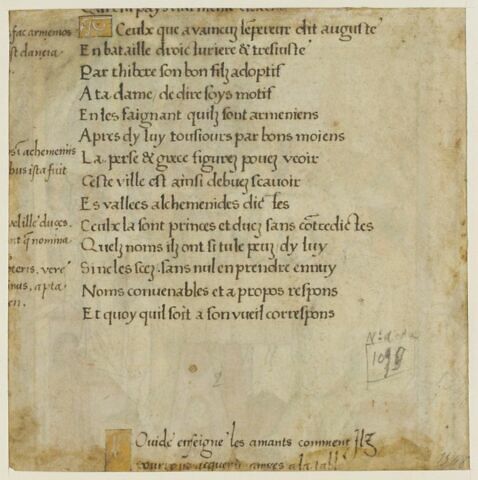 fac armenios
st danaeia
Ceulx que a vaincuz lempereur dit auguste
En bataille droicturiere & tresiuste
Par thibere son bon filz adoptif
A ta dame, de dire soys motif
En les faignant quilz sont armeniens
Apres dy luy tousiours par bons moiens
La perse & grece figurez pouez veoir
Ceste ville est ainsi debuez scauoir
Es vallees alchemenides dictes
Ceulx la sont princes et ducz sans cõtredictes
Quelz noms ilz ont si tu le peuz dy luy
Si ne les scez, sans nul en prendre ennuy
Noms conuenables et a propos respons
Et quoy quil soit a son vueil correspons
achemeniis
bus ista fuit
vel ille duces.
nt q̃ nomina
teris, vere
nus, apta
en.
1098
2
Ouide enseigne les amants comment Ilz